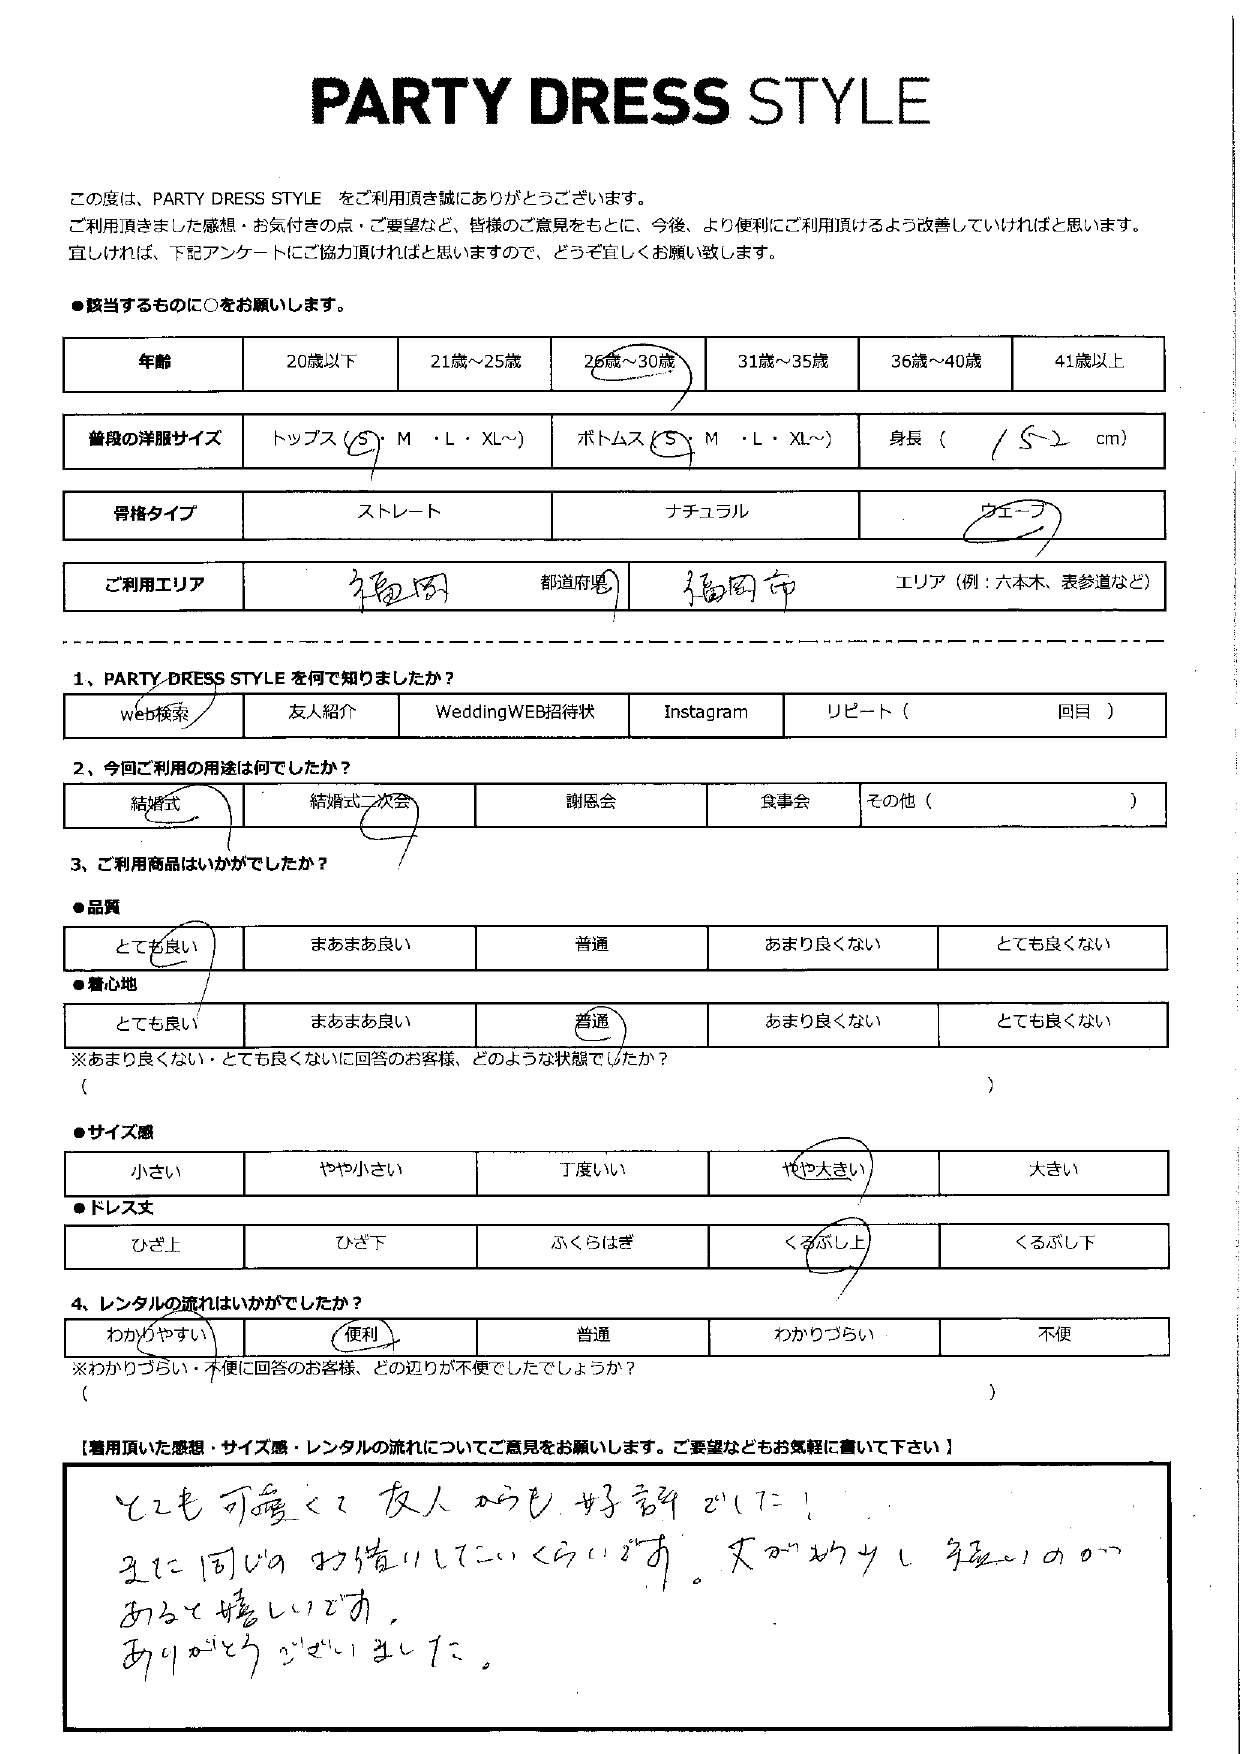 PARTY DRESS STYLE
この度は、PARTY DRESS STYLE をご利用頂き誠にありがとうございます。
ご利用頂きました感想・お気付きの点・ご要望など、皆様のご意見をもとに、今後、より便利にご利用頂けるよう改善していければと思います。
宜しければ、下記アンケートにご協力頂ければと思いますので、どうぞ宜しくお願い致します。
●該当するものに○をお願いします。
年齢 20歳以下 21歳～25歳 26歳～30歳 31歳～35歳 36歳～40歳 41歳以上
普段の洋服サイズ トップス（S・M ・L・XL～) ボトムス（S・M ・L・XL～) 身長（ 152 cm）
骨格タイプ ストレート ナチュラル ウェーブ
ご利用エリア 福岡 都道府県 福岡市 エリア（例：六本木、表参道など）
1、PARTY DRESS STYLE を何で知りましたか？
web検索 友人紹介 WeddingWEB招待状 Instagram リピート（ 回目 ）
2、今回ご利用の用途は何でしたか？
結婚式 結婚式二次会 謝恩会 食事会 その他（ ）
3、ご利用商品はいかがでしたか？
●品質
とても良い まあまあ良い 普通 あまり良くない とても良くない
●着心地
とても良い まあまあ良い 普通 あまり良くない とても良くない
※あまり良くない・とても良くないに回答のお客様、どのような状態でしたか？
（ ）
●サイズ感
小さい やや小さい 丁度いい やや大きい 大きい
●ドレス丈
ひざ上 ひざ下 ふくらはぎ くるぶし上 くるぶし下
4、レンタルの流れはいかがでしたか？
わかりやすい 便利 普通 わかりづらい 不便
※わかりづらい・不便に回答のお客様、どの辺りが不便でしたでしょうか？
（ ）
【着用頂いた感想・サイズ感・レンタルの流れについてご意見をお願いします。ご要望などもお気軽に書いて下さい 】
とても可愛くて友人からも好評でした！
また同じのお借りしたいくらいです。丈がわ少し短いのが
あると嬉しいです。
ありがとうございました。